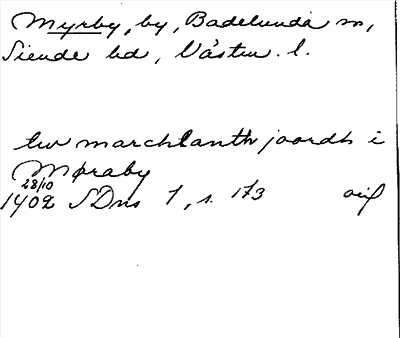 Myrby, by, Badelunda sn,
Siende hd, Västm. l.
tw marchlanth joordh i
Møraby
28/10
1402 SDns 1, s. 173 orig